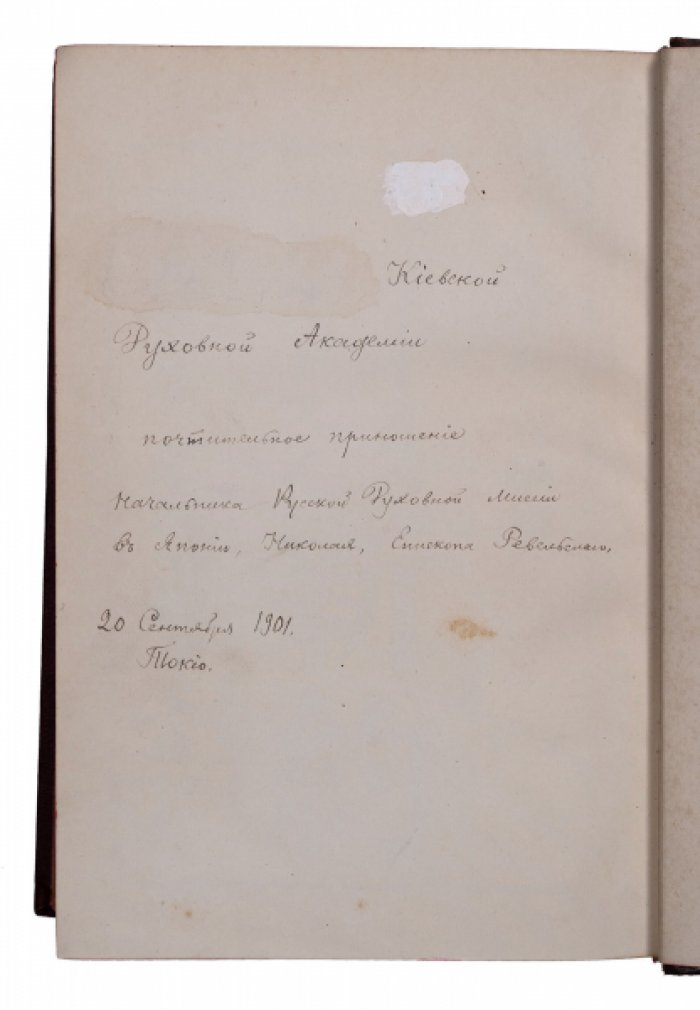 Кіевской
Духовной Академіи
почтительное приношеніе
Начальника Русской Духовной Миссіи
въ Японіи, Николая, Епископа Ревельскаго,
20 Сентября 1901.
Токіо.